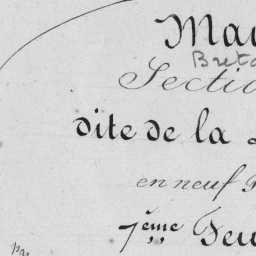 Mai
Breta
Section
dite de la
en neuf F
7ème Feu
par